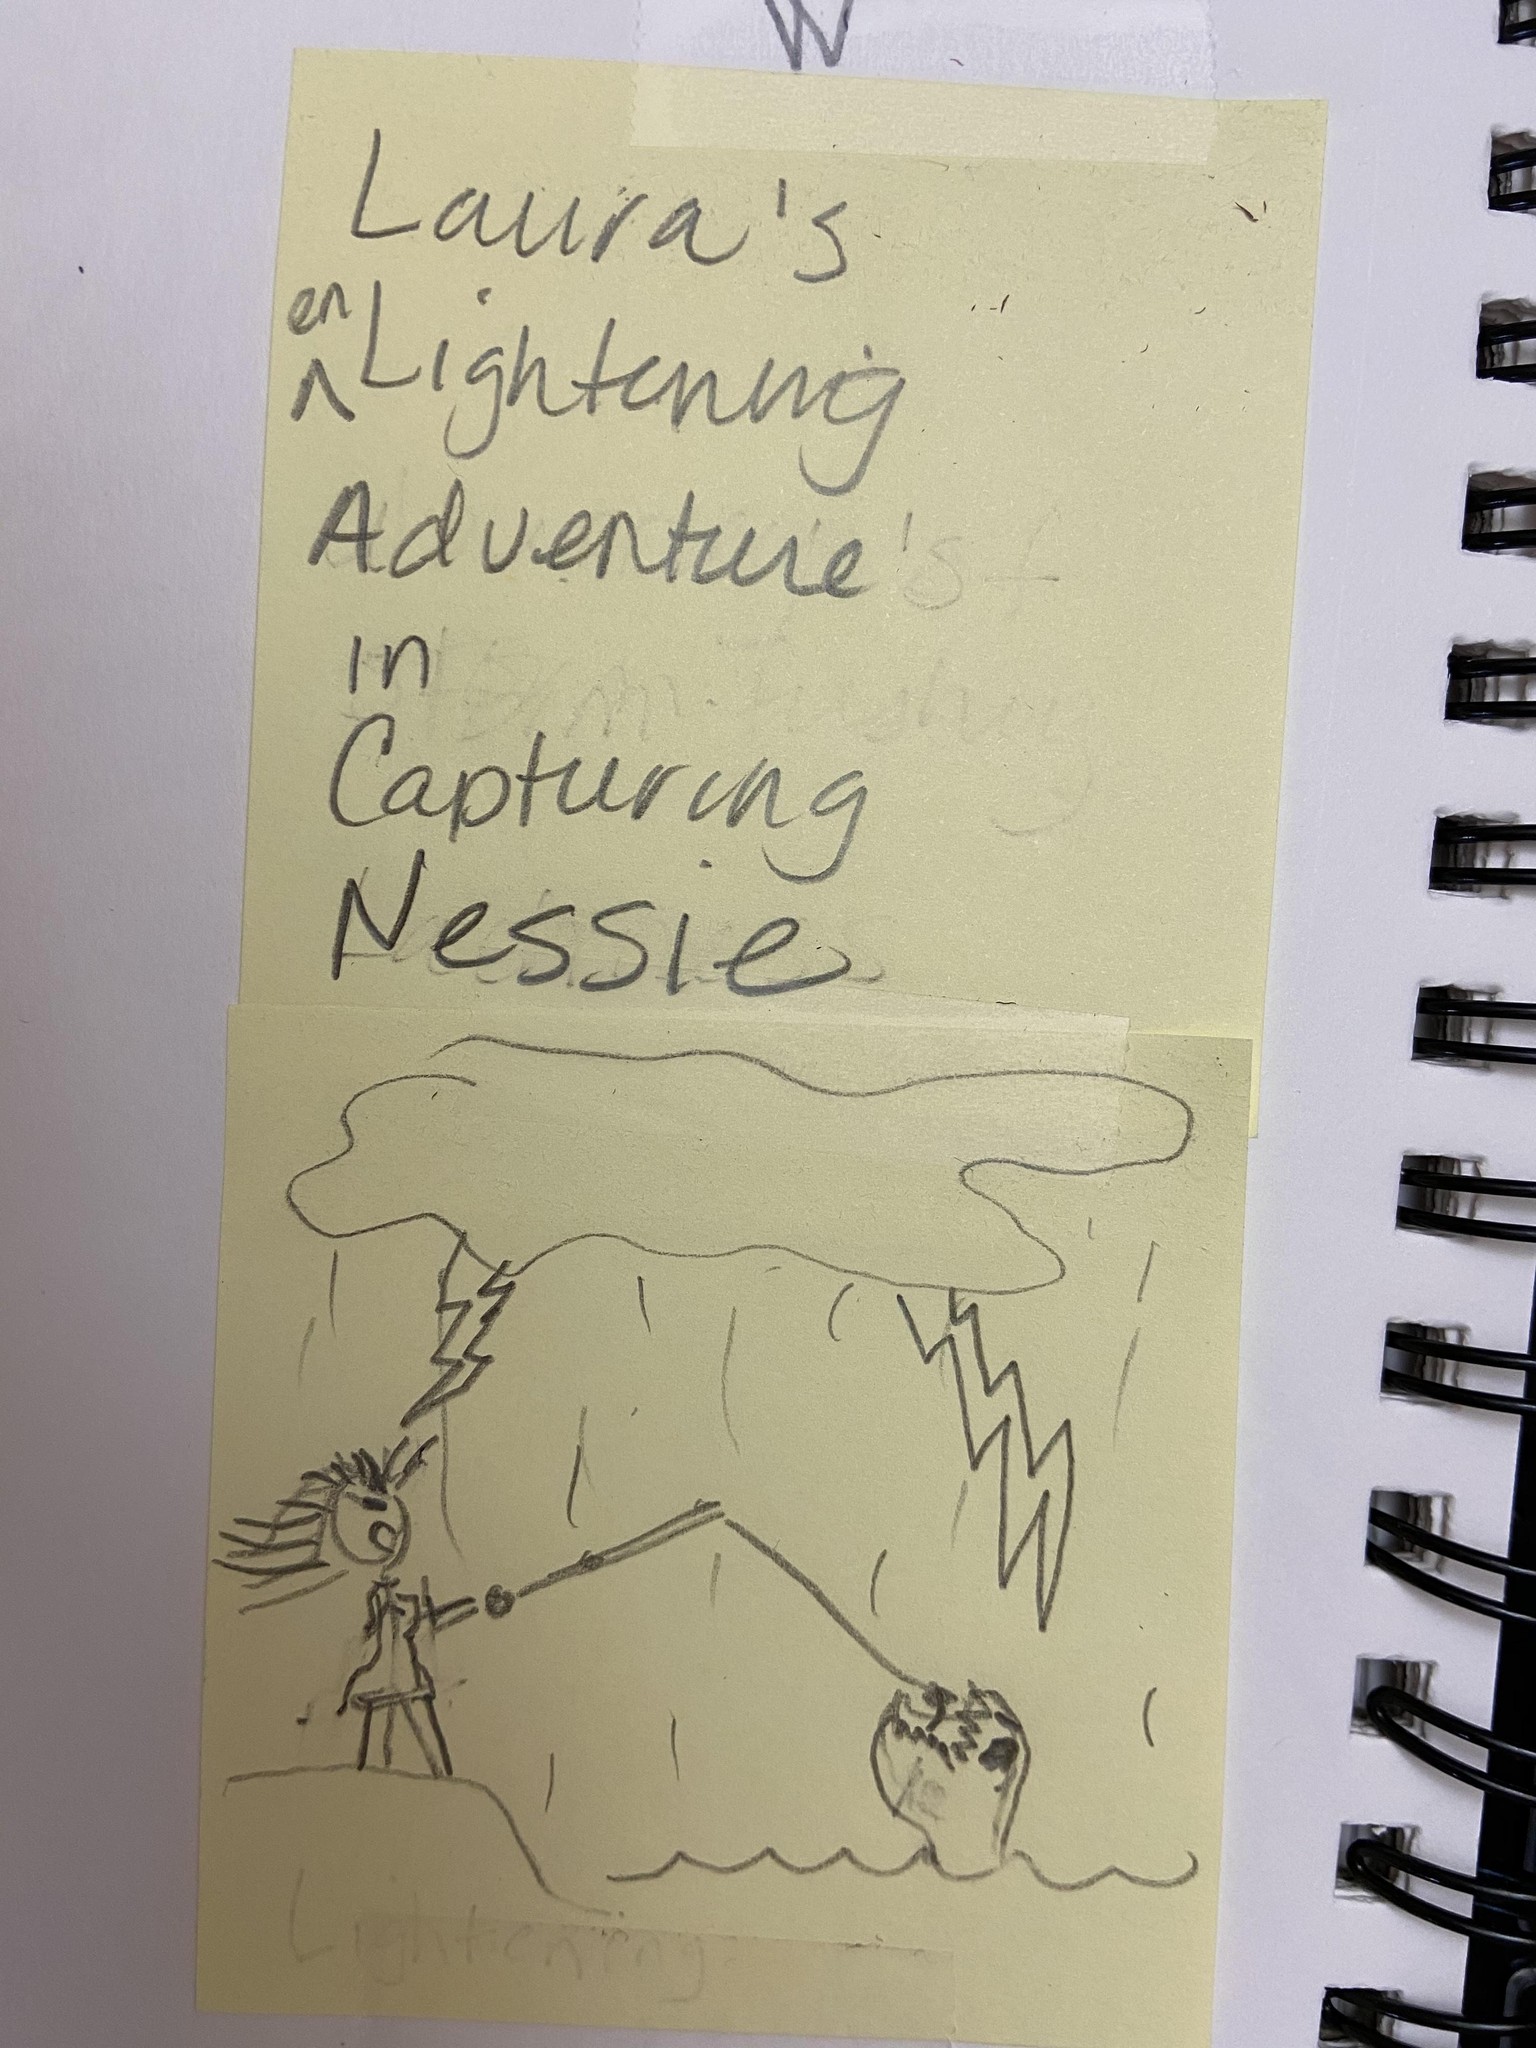 W
Laura's
en
^Lightening
Adventure's
in
Capturing
Nessie
Lightening